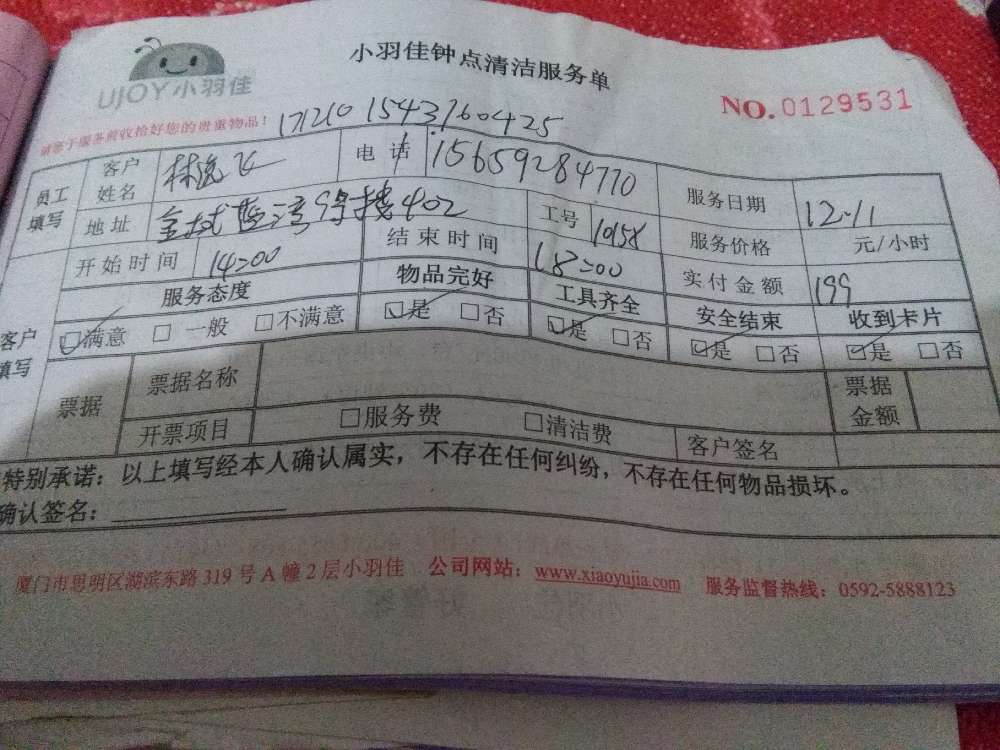 UJOY小羽佳
小羽佳钟点清洁服务单
NO.0129531
请您于服务前收拾好您的贵重物品!
171210 1543760425
员工填写 客户姓名 林 飞 电话 15659284770 服务日期 12.11
地址 金域蓝湾9号楼402 工号 10158 服务价格 元/小时
开始时间 14:00 结束时间 18:00 实付金额 199
客户填写 服务态度 物品完好 工具齐全 安全结束 收到卡片
☑满意 □一般 □不满意 ☑是 □否 ☑是 □否 ☑是 □否 ☑是 □否
票据 票据名称 票据金额
开票项目 □服务费 □清洁费 客户签名
特别承诺:以上填写经本人确认属实,不存在任何纠纷,不存在任何物品损坏。
确认签名:
厦门市思明区湖滨东路319号A幢2层小羽佳 公司网站:www.xiaoyujia.com 服务监督热线:0592-5888123